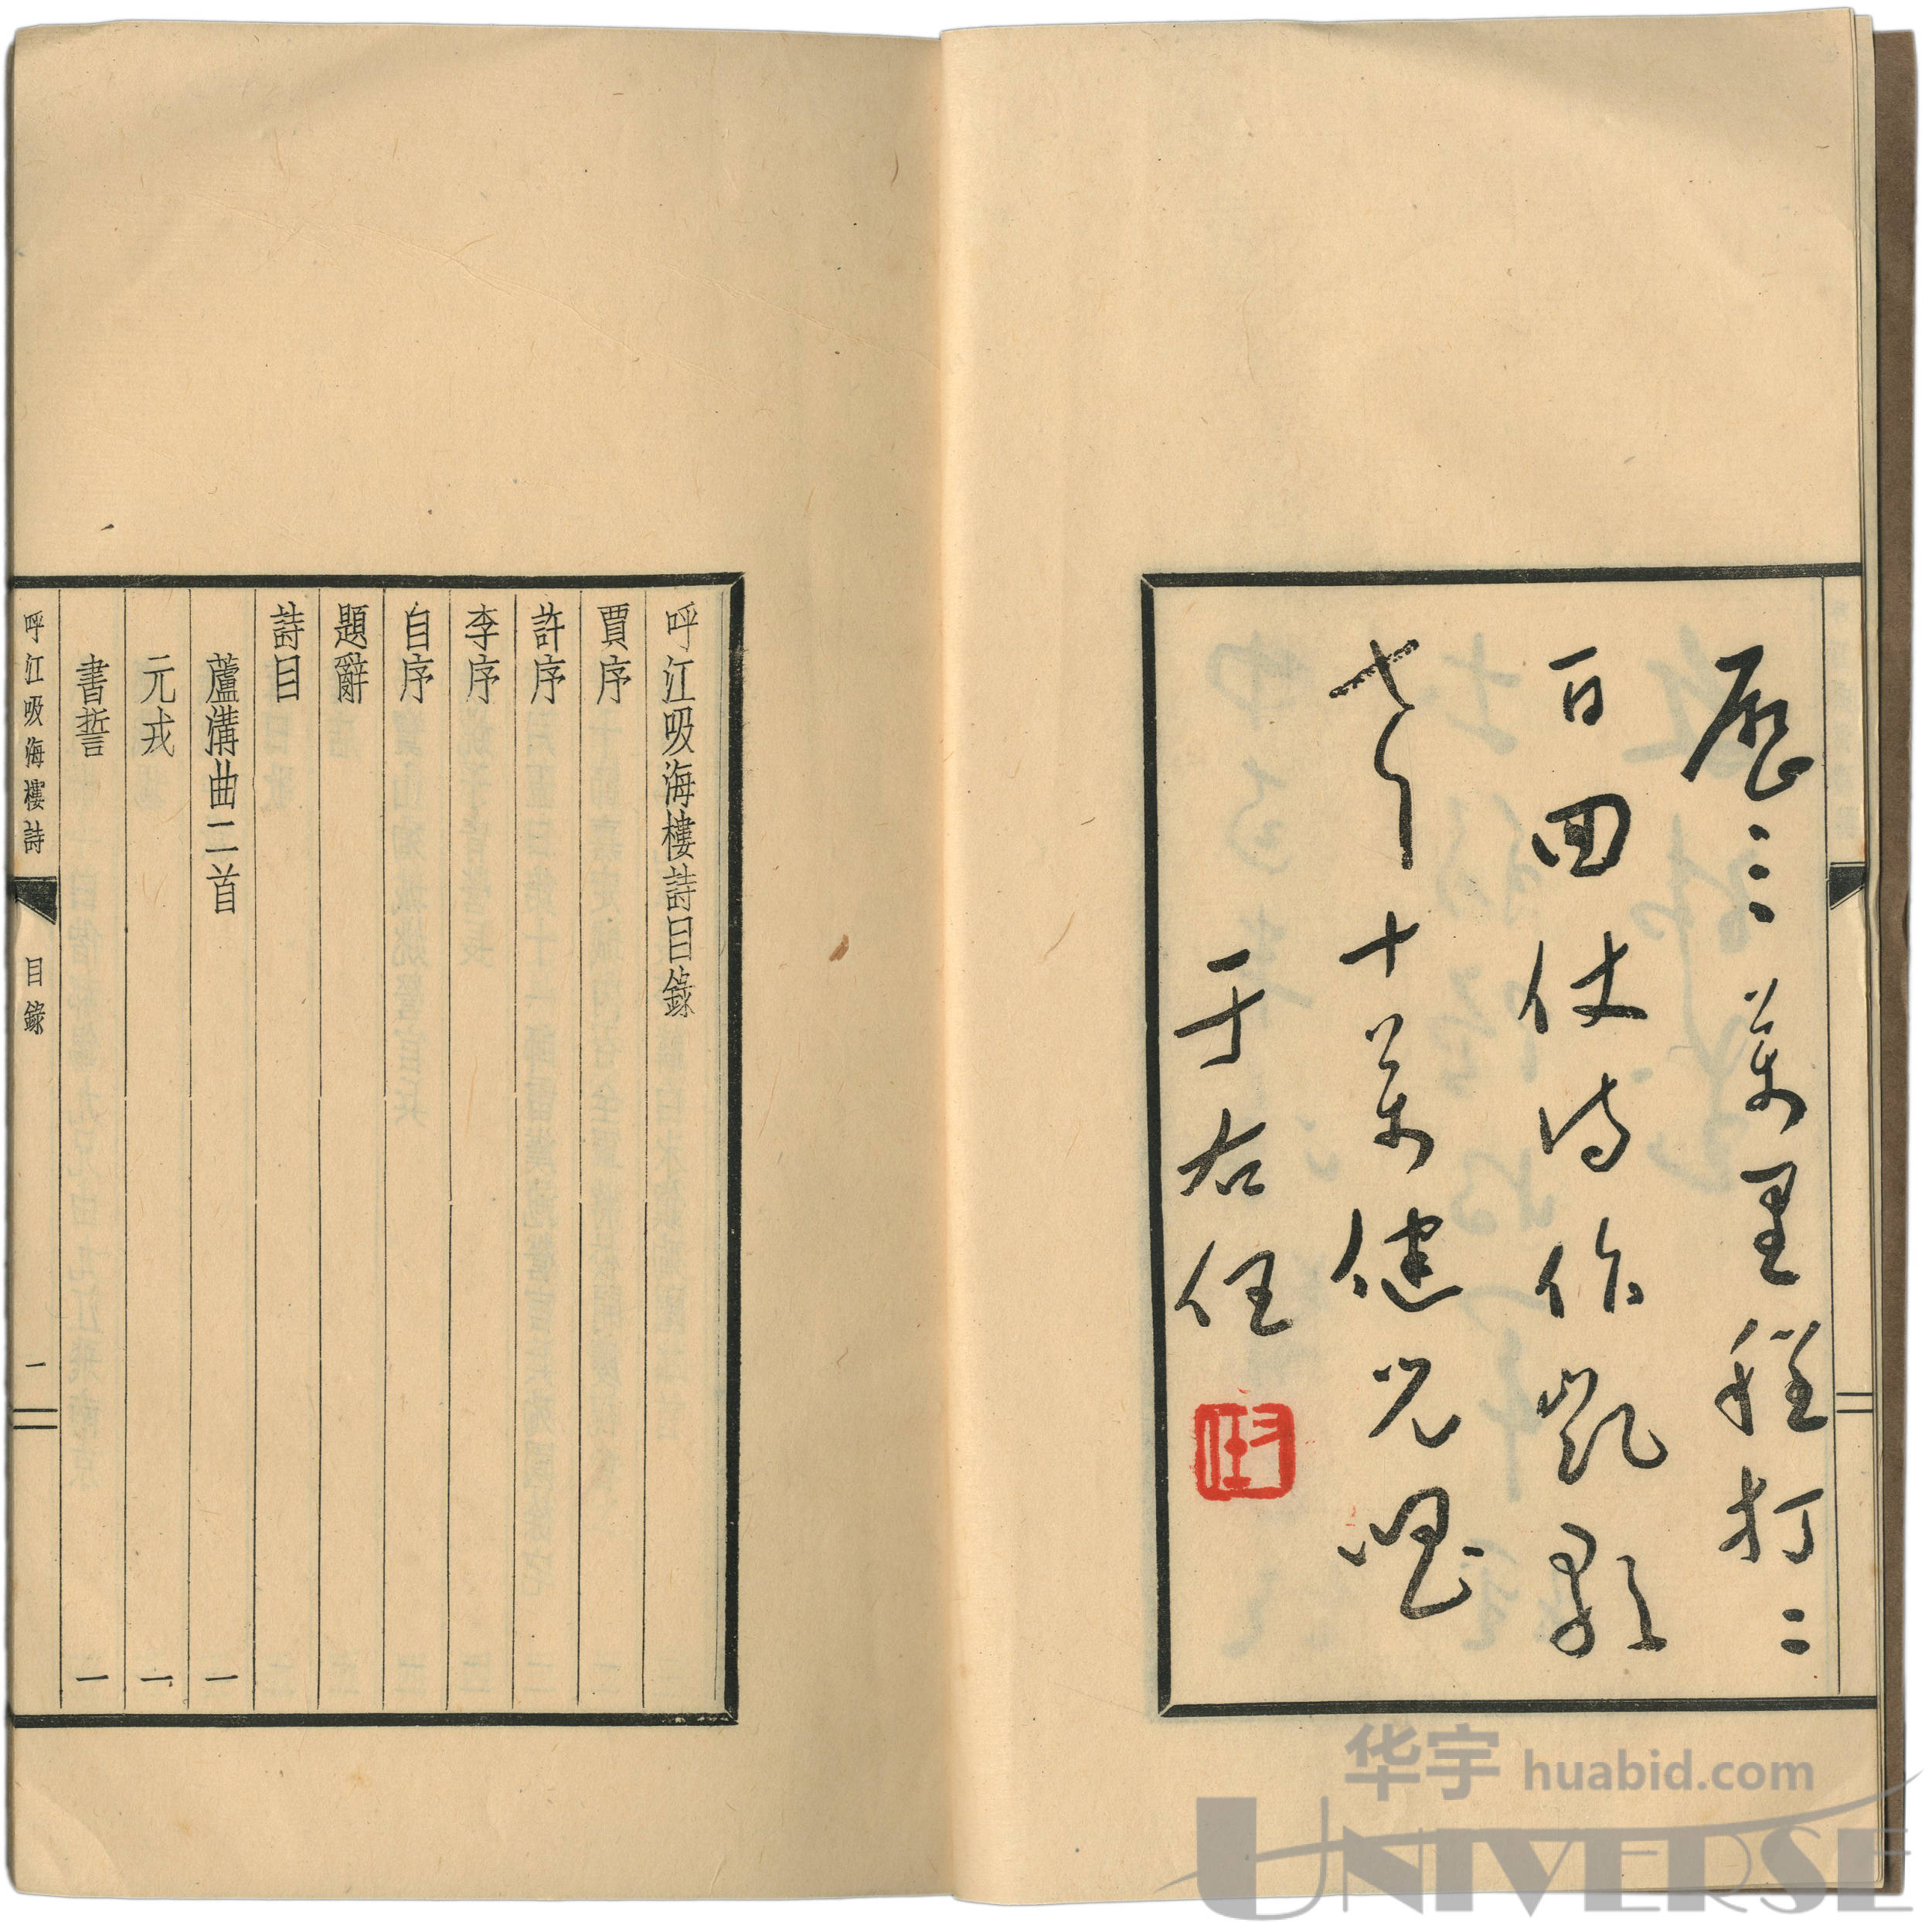 歷二三萬里程打二
百回仗詩作凱歌
十萬健兒唱
于右任
右任
呼江吸海樓詩目錄
賈序
許序
李序
自序
題辭
詩目
蘆溝曲二首 一
元戎 一
書誓 一
呼江吸海樓詩 目錄 一
华宇 huabid.com
UNIVERSE